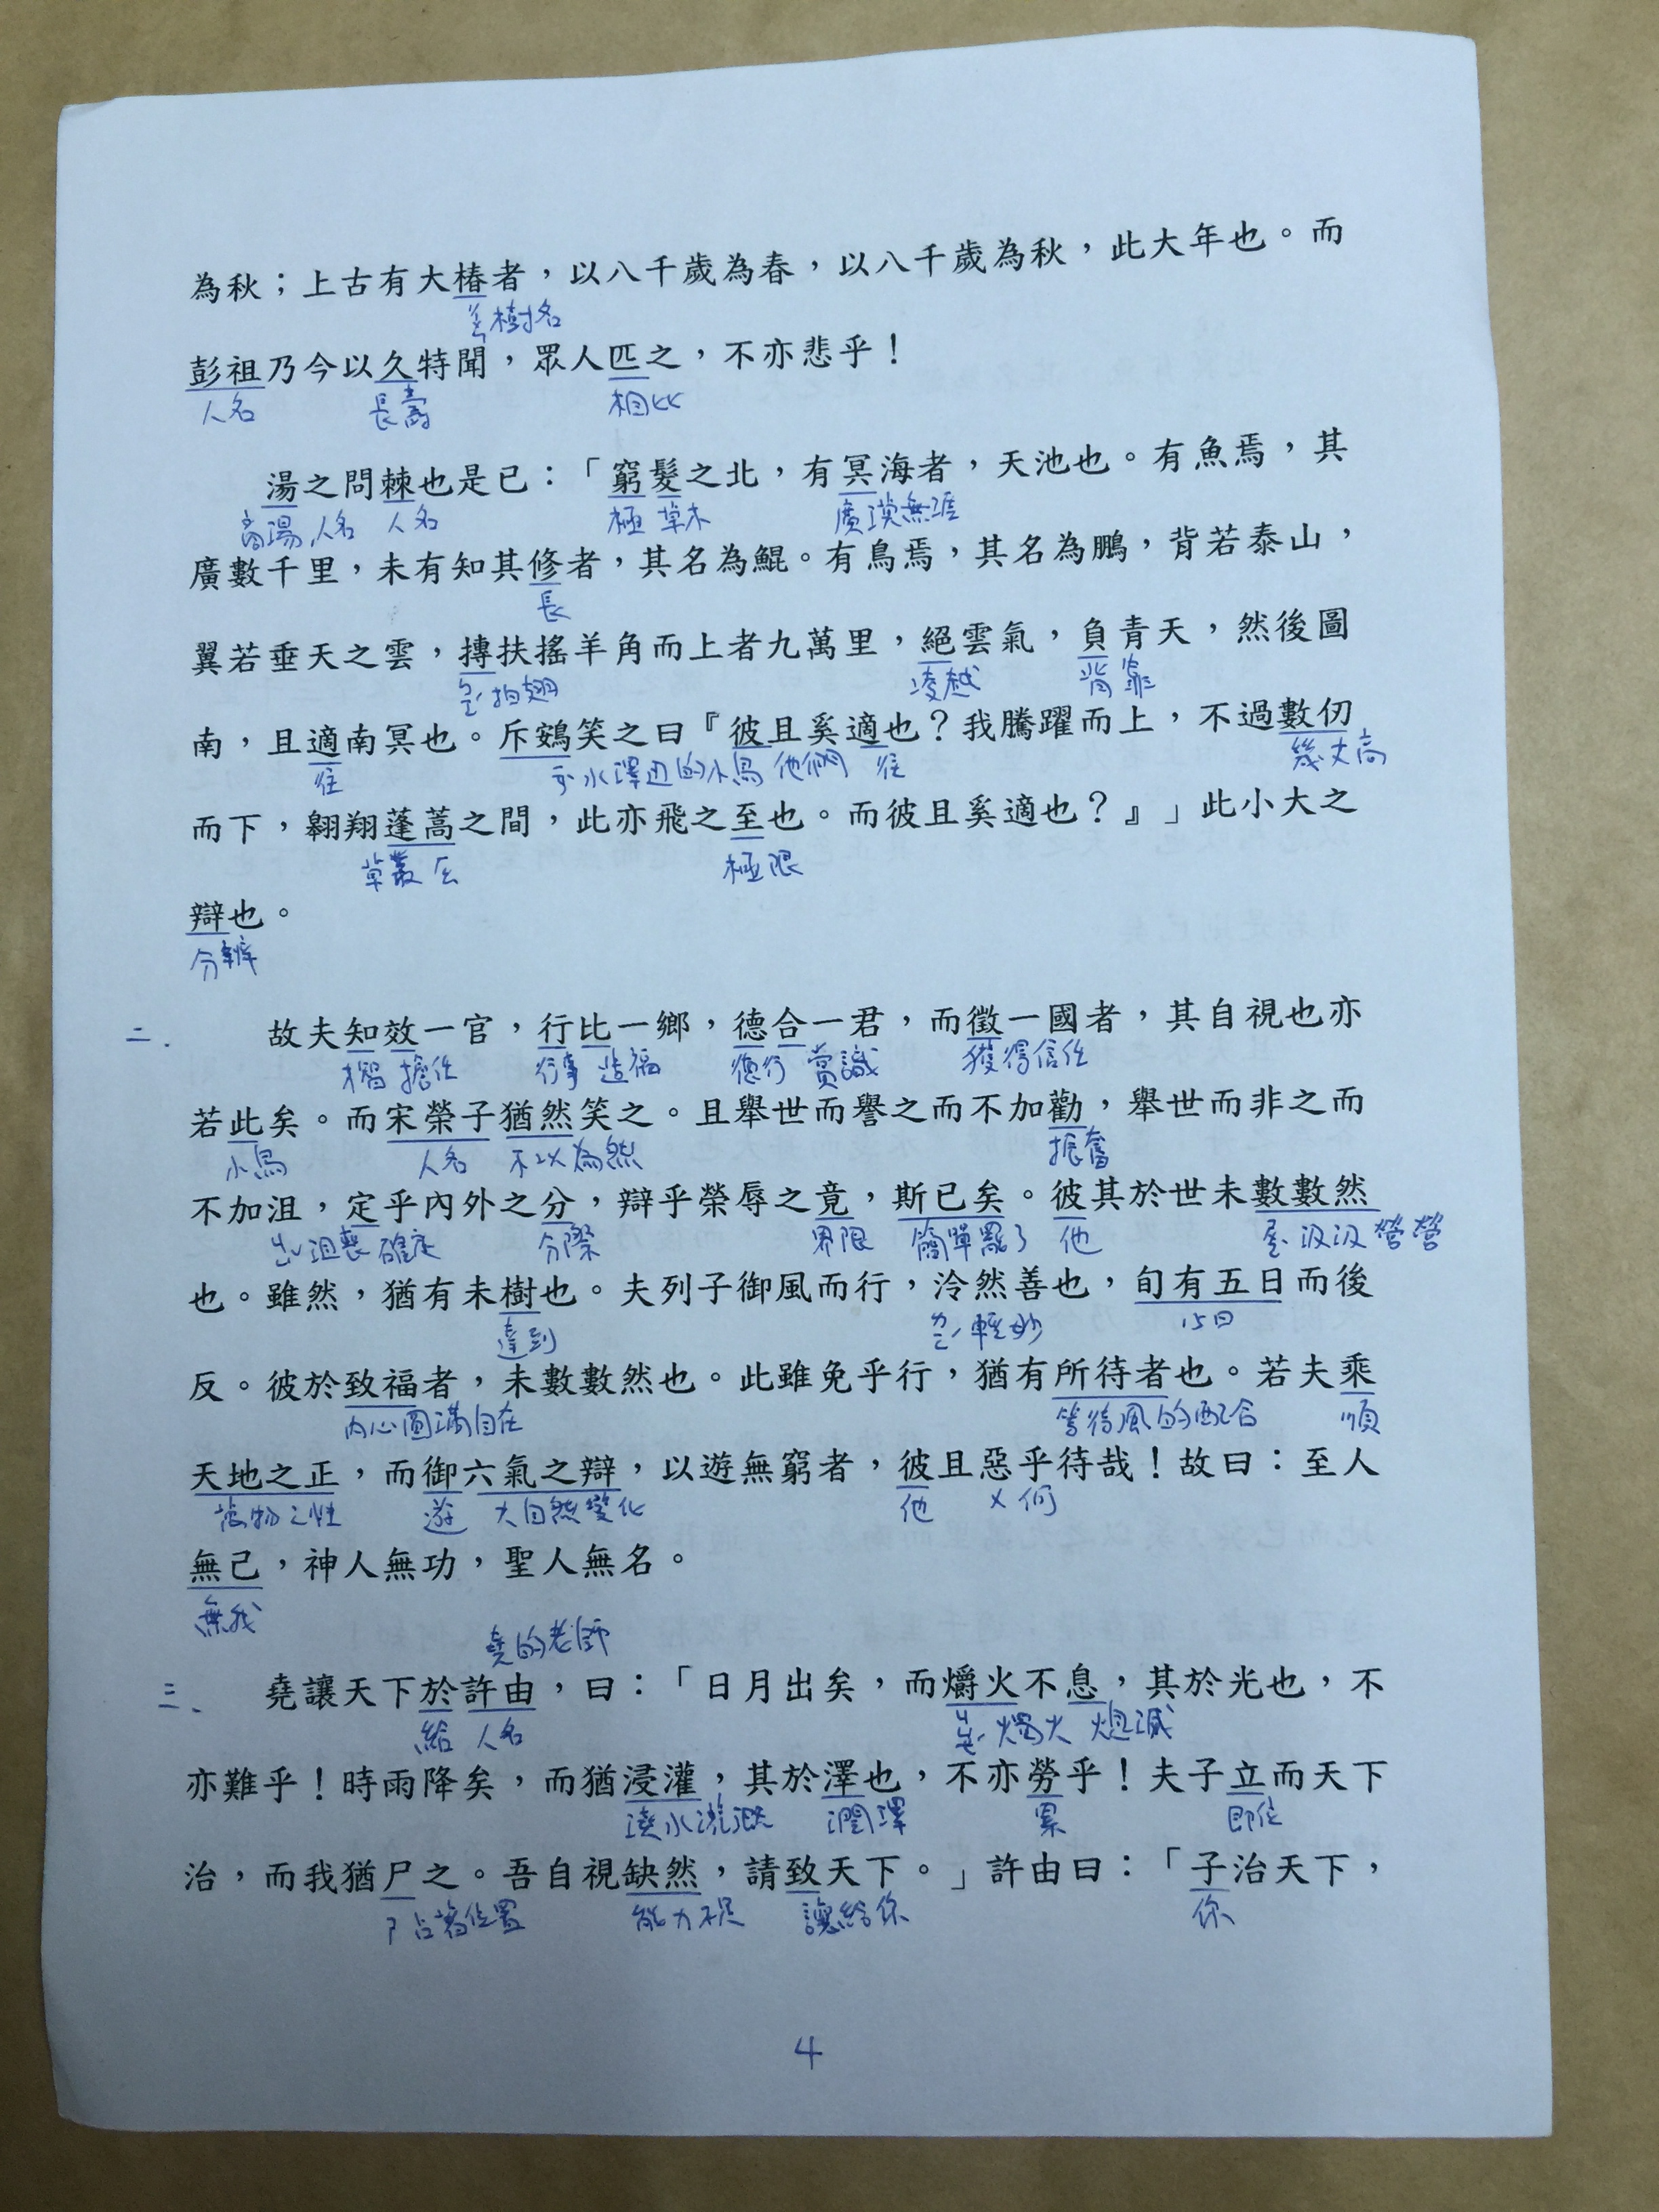 為秋；上古有大椿者，以八千歲為春，以八千歲為秋，此大年也。而
樹名
彭祖乃今以久特聞，眾人匹之，不亦悲乎！
人名 長壽 相比
湯之問棘也是已：「窮髮之北，有冥海者，天池也。有魚焉，其
商湯,人名 人名 極 草木 廣漠無涯
廣數千里，未有知其修者，其名為鯤。有鳥焉，其名為鵬，背若泰山，
長
翼若垂天之雲，摶扶搖羊角而上者九萬里，絕雲氣，負青天，然後圖
拍翅 凌越 背靠
南，且適南冥也。斥鴳笑之曰『彼且奚適也？我騰躍而上，不過數仞
往 水澤边的小鳥 他們 往 幾丈高
而下，翱翔蓬蒿之間，此亦飛之至也。而彼且奚適也？』」此小大之
草叢 ㄏㄠ 極限
辯也。
分辨
二. 故夫知效一官，行比一鄉，德合一君，而徵一國者，其自視也亦
擔任 行事 造福 德行 賞識 獲得信任
若此矣。而宋榮子猶然笑之。且舉世而譽之而不加勸，舉世而非之而
小鳥 人名 不以為然 振奮
不加沮，定乎內外之分，辯乎榮辱之竟，斯已矣。彼其於世未數數然
ㄐㄩˇ沮喪 確定 分際 界限 簡單罷了 他 汲汲營營
也。雖然，猶有未樹也。夫列子御風而行，泠然善也，旬有五日而後
達到 ㄌㄧㄥˊ輕妙 15日
反。彼於致福者，未數數然也。此雖免乎行，猶有所待者也。若夫乘
內心圓滿自在 等待風的配合 順
天地之正，而御六氣之辯，以遊無窮者，彼且惡乎待哉！故曰：至人
萬物之性 遊 大自然變化 他 ㄨ 何
無己，神人無功，聖人無名。
無我
堯的老師
三、 堯讓天下於許由，曰：「日月出矣，而爝火不息，其於光也，不
給 人名 ㄐㄩㄝˊ 燭火 熄滅
亦難乎！時雨降矣，而猶浸灌，其於澤也，不亦勞乎！夫子立而天下
澆水灌溉 潤澤 累 即位
治，而我猶尸之。吾自視缺然，請致天下。」許由曰：「子治天下，
ㄕ 占著位置 能力不足 讓給你 你
4